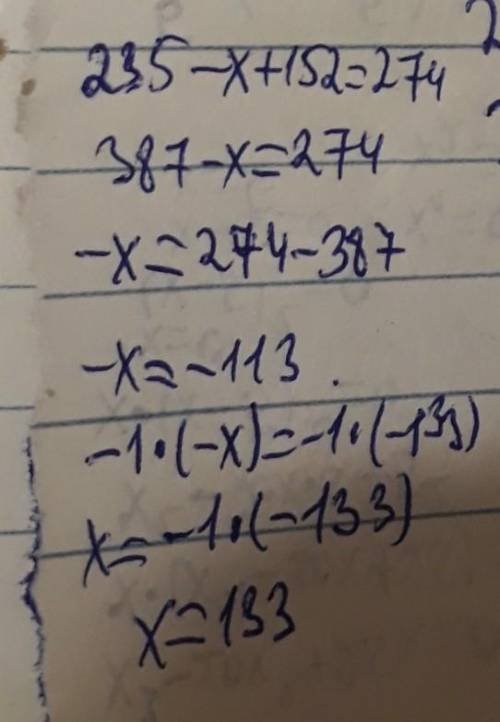 235-x+152=274
387-x=274
-x=274-387
-x=-113.
-1·(-x)=-1·(-133)
x=-1·(-133)
x=133